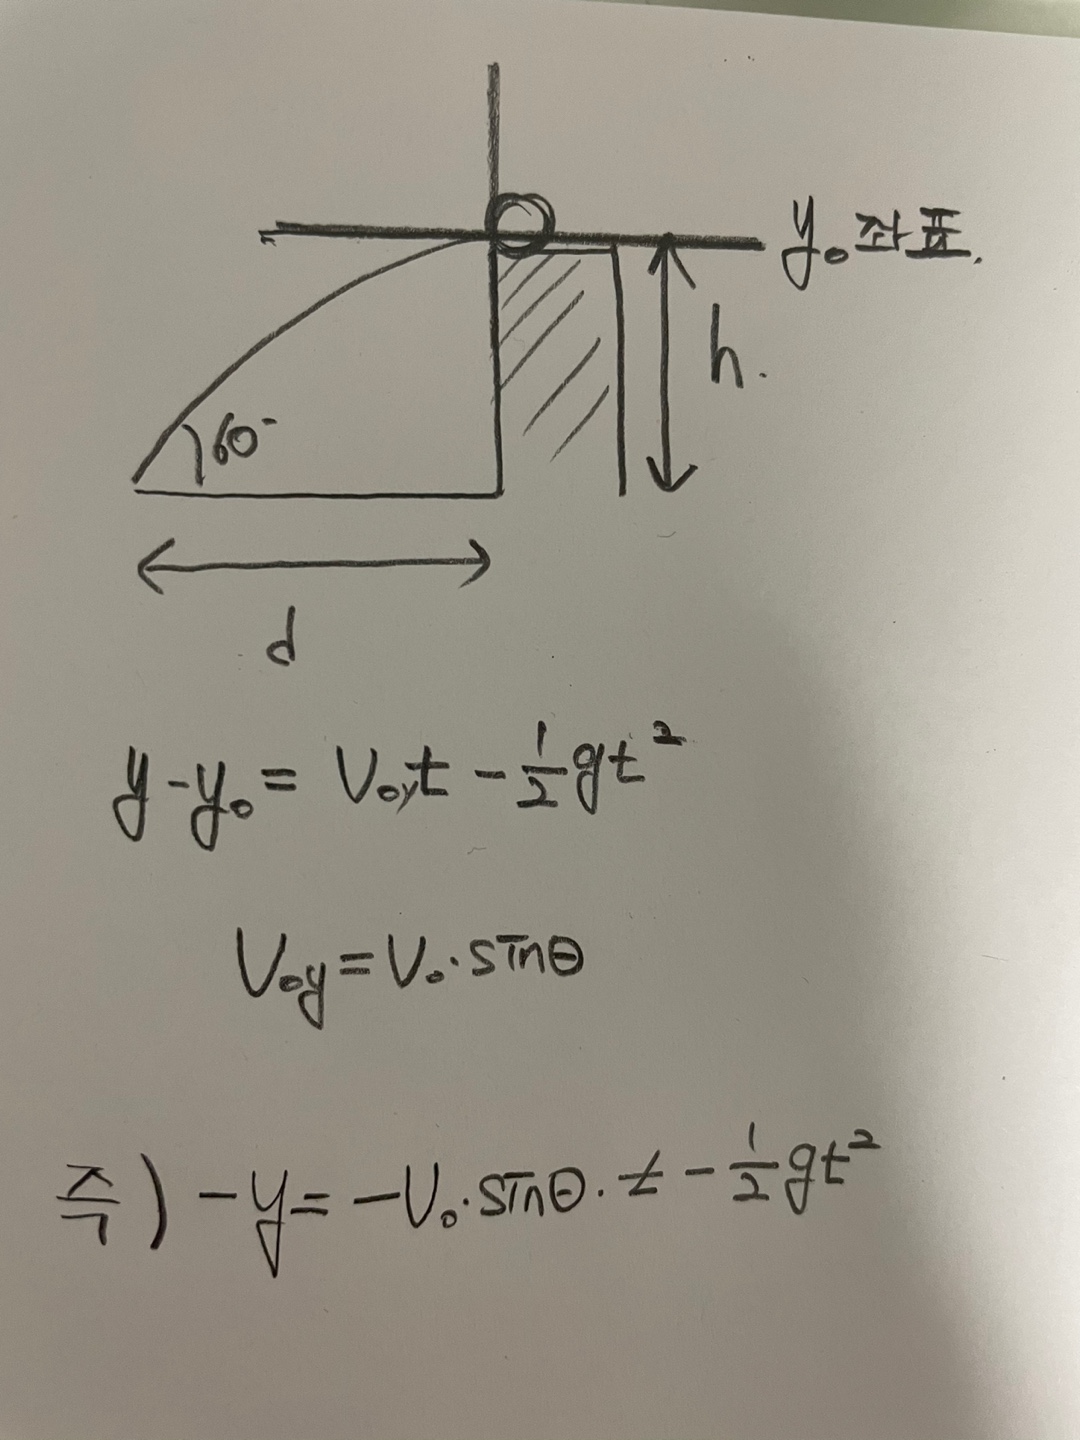 y₀ 좌표.
h.
60°
d
y-y₀ = V₀yt - ½gt²
V₀y = V₀·sinθ
즉) -y = -V₀·sinθ·t - ½gt²